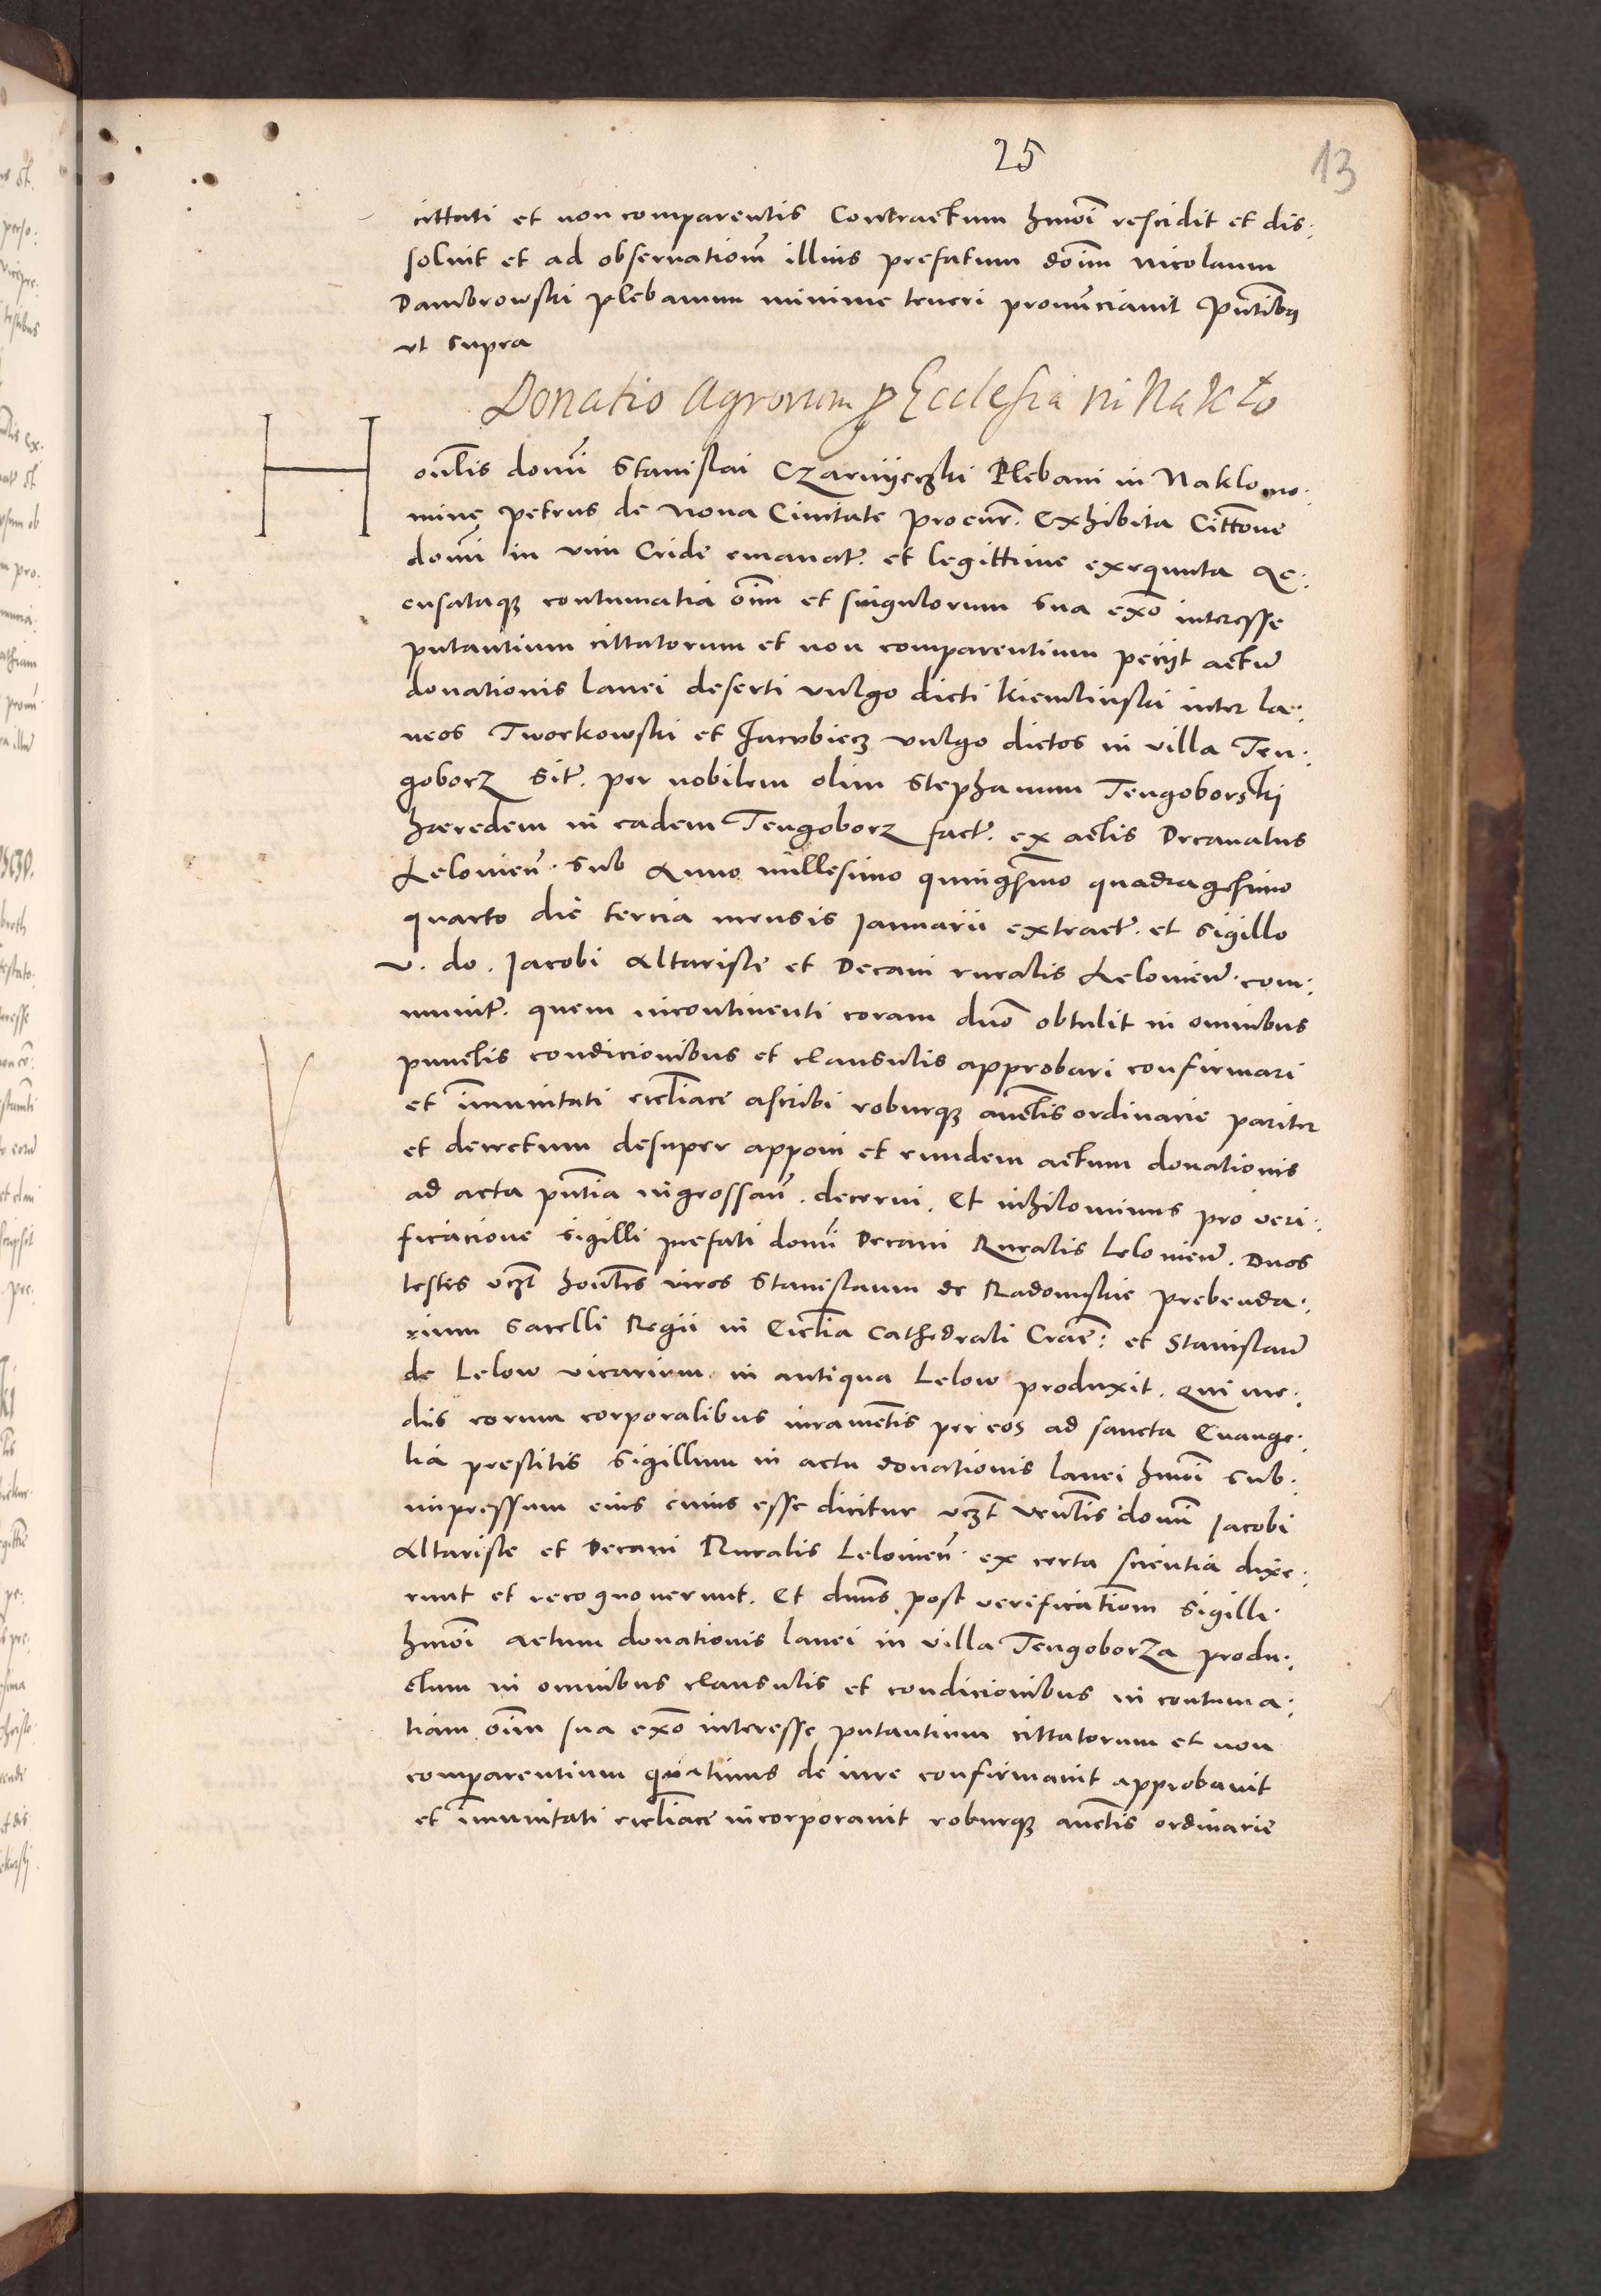 25
13
cittati et non comparentis Contractum hmoi rescidit et dis:
soluit et ad obseruationem illius prefatum donum nicolaum
Dambrowski plebanum minime teneri pronunciauit Pntibus
vt supra
Donatio Agrorum p Ecclesia in Nakło
Honlis domi Stanislai Czarnijeczki Plebani in Naklo no:
mine petrus de Noua Ciuitate procur. Exhibita Cittone
domi in vim Cride emanat. et legittime exequuta Ac:
cusataque contumatia oim et singulorum sua exo interesse
putantium cittatorum et non comparentium peciit actum
donationis lanei deserti vulgo dicti Kiemlinski inter la:
neos Tworkowski et Jacubiecz vulgo dictos in villa Ten:
goborz sit. per nobilem olim Stephanum Tengoborski
hæredem in eadem Tengoborz fact. ex actis Decanatus
Lelovien. sub Anno millesimo quingesimo quadragesimo
quarto die tercia mensis Januarii extract. et sigillo
v. do. Jacobi Altariste et Decani ruralis Leloviens. com:
munit. quem incontinenti coram dno obtulit in omnibus
punctis condicionibus et clausulis approbari confirmari
et imunitati eccliace ascribi roburque auctis ordinarie pariter
et decretum desuper apponi et eundem actum donationis
ad acta pntia ingrossan. decerni. Et nihilominus pro veri:
ficacione sigilli prefati domi Decani Ruralis Leloviens. Duos
testes vczt honles viros Stanislaum de Radomskie prebenda:
rium sacelli Regii in Ecclia Cathedrali Crac: et Stanislaum
de Lelow vicarium in antiqua Lelow produxit. Qui me:
diis eorum corporalibus iuramentis per eos ad sancta Euange:
lia prestitis sigillum in actu donationis lanei hmoi sub:
impressum eius cuius esse dicitur vczt venlis domi Jacobi
Altariste et Decani Ruralis Leloviens. ex certa scientia dixe:
runt et recognouerunt. Et dnus post verificationem sigilli
hmoi actum donationis lanei in villa Tengoborza produ:
ctum in omnibus clausulis et condicionibus in contuma:
tiam oim sua exo interesse putantium cittatorum et non
comparentium quatinus de iure confirmauit approbauit
et imunitati eccliace incorporauit roburque auctis ordinarie